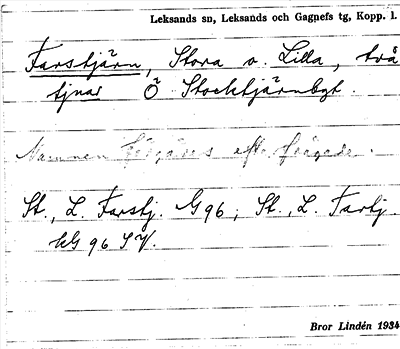 Leksands sn, Leksands och Gagnefs tg, Kopp. l.
Farstjärn, Stora o. Lilla, två
tjnar Ö Stocktjärnbgt.
Namnen efterfrågade.
St., L. Farstj. G 96; St., L. Fartj.
HG 96 SV.
Bror Lindén 1934